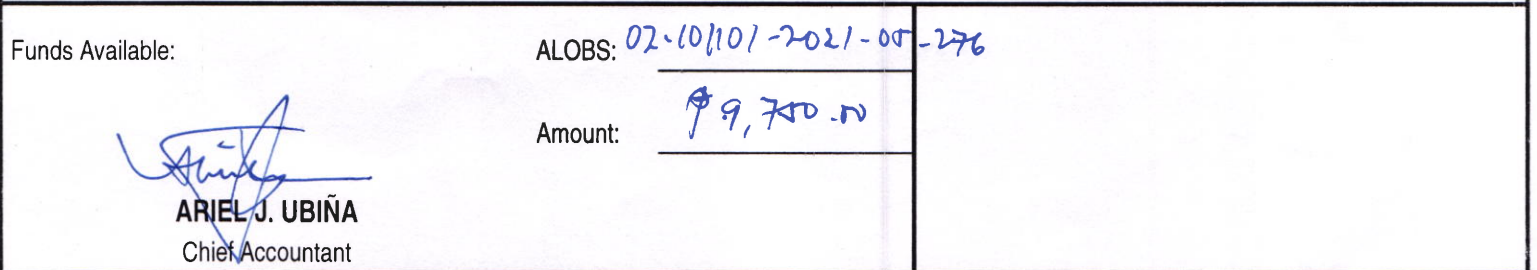 Funds Available:
ALOBS: 02-10/101-2021-05-276
Amount: ₱ 9,750.00
ARIEL J. UBIÑA
Chief Accountant